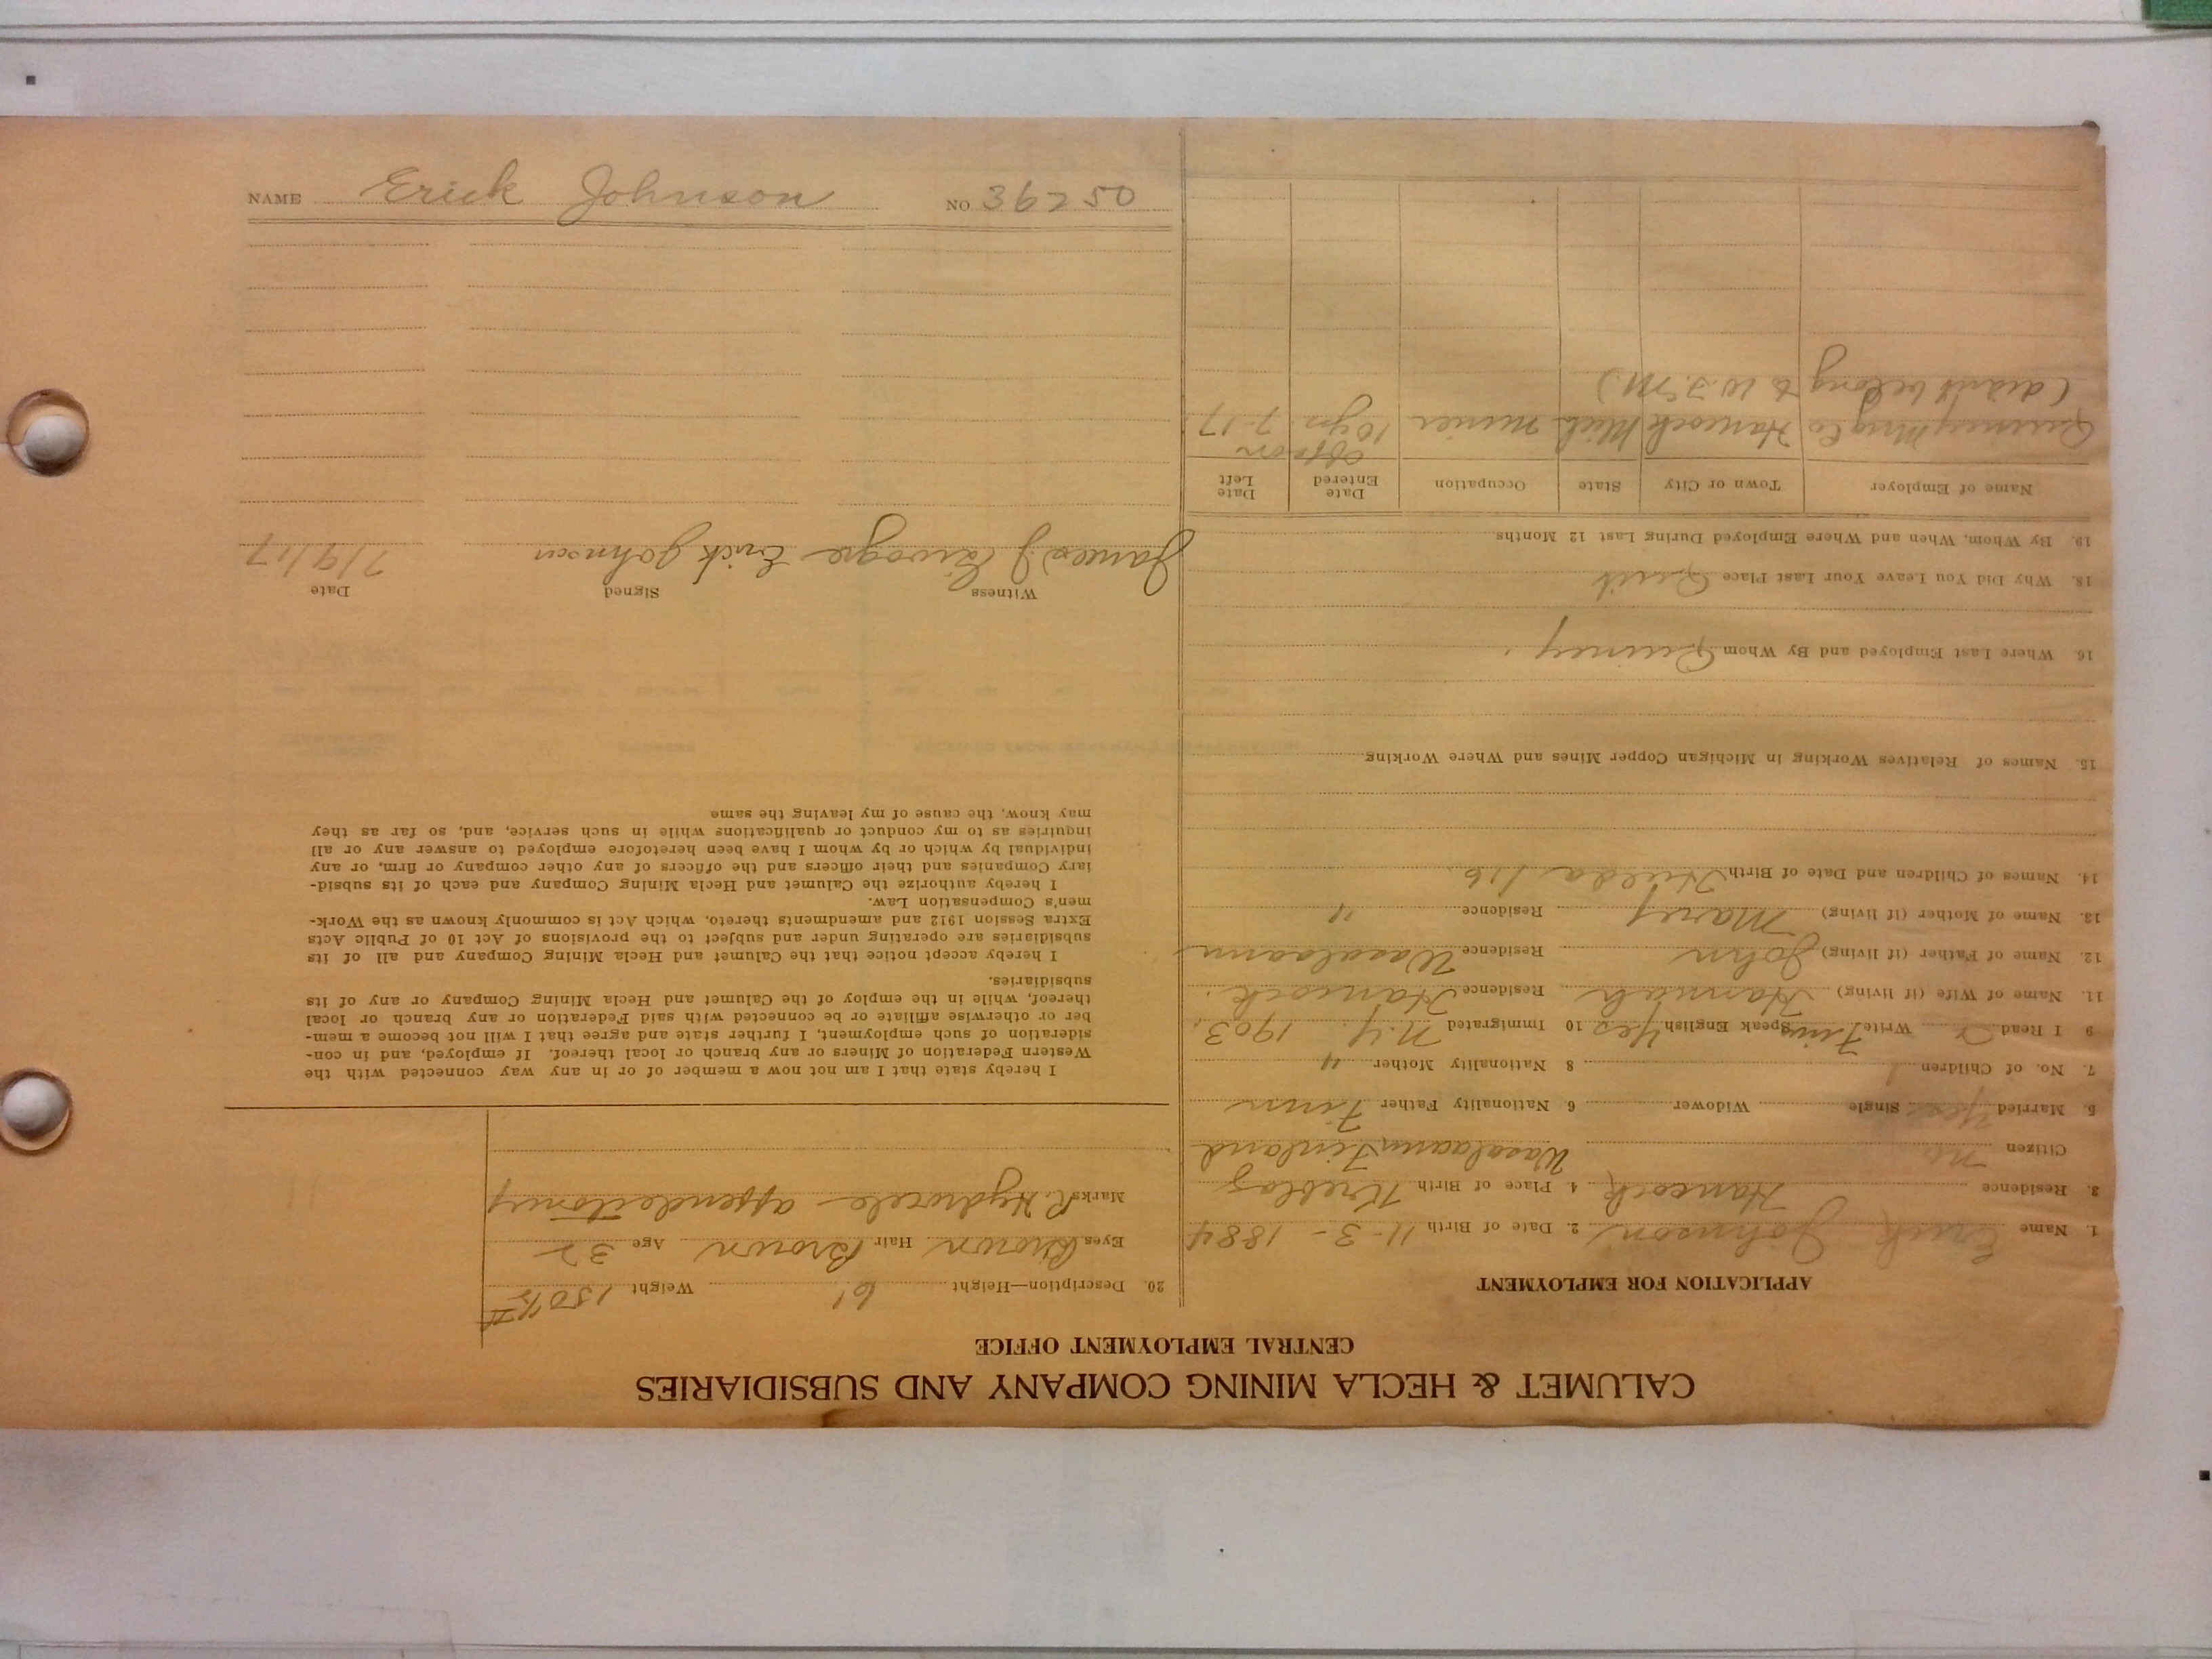 CALUMET & HECLA MINING COMPANY AND SUBSIDIARIES
CENTRAL EMPLOYMENT OFFICE
APPLICATION FOR EMPLOYMENT
1. Name Erick Johnson 2. Date of Birth 11-3-1884
3. Residence Hancock 4. Place of Birth
Citizen no Wasalaani Finland
5. Married yes Single Widower 6. Nationality Father Finn
7. No. of Children 1 8 Nationality Mother "
9 I Read Write Finn Speak English Yes 10 Immigrated N.Y. 1903.
11. Name of Wife (if living) Hannah Residence Hancock.
12. Name of Father (if living) John Residence Wasalaani
13. Name of Mother (if living) Mary Residence "
14. Names of Children and Date of Birth Hilda
15. Names of Relatives Working in Michigan Copper Mines and Where Working
16. Where Last Employed and By Whom Quincy.
18. Why Did You Leave Your Last Place Quit
19. By Whom, When and Where Employed During Last 12 Months
Name of Employer Town or City State Occupation Date Entered Date Left
off & on
Quincy Mng Co Hancock Mich miner 10 yrs. 7-17
(didn't belong to W.F.M.)
20. Description—Height 6' Weight 150½#
Eyes Brown Hair Brown Age 32
Marks R. Hydrocele appendectomy
I hereby state that I am not now a member of or in any way connected with the
Western Federation of Miners or any branch or local thereof. If employed, and in con-
sideration of such employment, I further state and agree that I will not become a mem-
ber or otherwise affiliate or be connected with said Federation or any branch or local
thereof, while in the employ of the Calumet and Hecla Mining Company or any of its
subsidiaries.
I hereby accept notice that the Calumet and Hecla Mining Company and all of its
subsidiaries are operating under and subject to the provisions of Act 10 of Public Acts
Extra Session 1912 and amendments thereto, which Act is commonly known as the Work-
men's Compensation Law.
I hereby authorize the Calumet and Hecla Mining Company and each of its subsid-
iary Companies and their officers and the officers of any other company or firm, or any
individual by which or by whom I have been heretofore employed to answer any or all
inquiries as to my conduct or qualifications while in such service, and, so far as they
may know, the cause of my leaving the same
Witness Signed Date
James J Erick Johnson 7/9/17
NAME Erick Johnson NO 36250